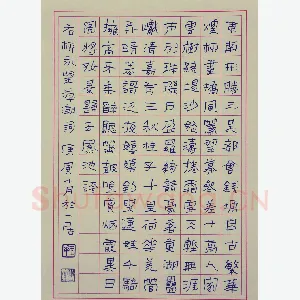 東南形勝三吳都會錢塘自古繁華
煙柳畫橋風簾翠幕參差十萬人家
雲樹繞堤沙怒濤卷霜雪天塹無涯
市列珠璣戶盈羅綺競豪奢重湖疊
巘清嘉有三秋桂子十里荷花羌管
弄晴菱歌泛夜嬉嬉釣叟蓮娃千騎
擁高牙乘醉聽簫鼓吟賞煙霞異日
圖將好景歸去鳳池誇
右柳永望海潮